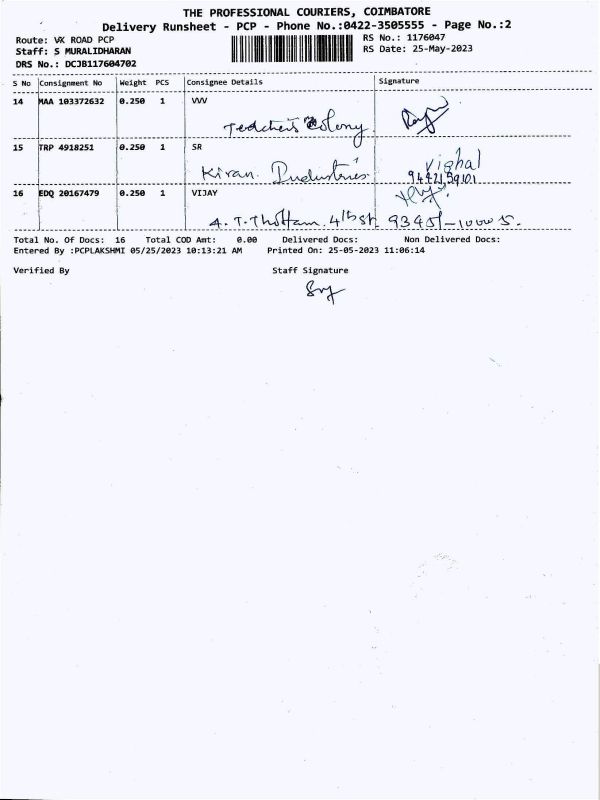 THE PROFESSIONAL COURIERS, COIMBATORE
Delivery Runsheet - PCP - Phone No.:0422-3505555 - Page No.:2
Route: VK ROAD PCP RS No.: 1176047
Staff: S MURALIDHARAN RS Date: 25-May-2023
DRS No.: DCJB117604702
S No Consignment No Weight PCS Consignee Details Signature
14 MAA 103372632 0.250 1 VVV
Teacher's Colony
15 TRP 4918251 0.250 1 SR
Kiran Industries
16 EDQ 20167479 0.250 1 VIJAY
A. T. Thottam
Total No. Of Docs: 16 Total COD Amt: 0.00 Delivered Docs: Non Delivered Docs:
Entered By :PCPLAKSHMI 05/25/2023 10:13:21 AM Printed On: 25-05-2023 11:06:14
Verified By Staff Signature